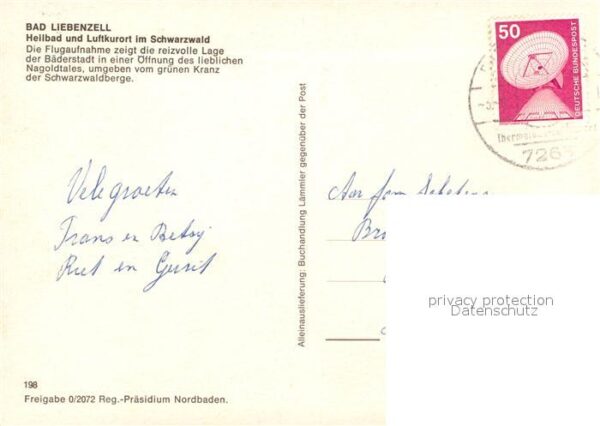 BAD LIEBENZELL
Heilbad und Luftkurort im Schwarzwald
Die Flugaufnahme zeigt die reizvolle Lage
der Bäderstadt in einer Öffnung des lieblichen
Nagoldtales, umgeben vom grünen Kranz
der Schwarzwaldberge.
50
DEUTSCHE BUNDESPOST
726
Vele groeten
Frans en Betsy
Riet en Gerrit
Alleinauslieferung: Buchhandlung Lämmler gegenüber der Post
Aan fam
privacy protection
Datenschutz
198
Freigabe 0/2072 Reg.-Präsidium Nordbaden.